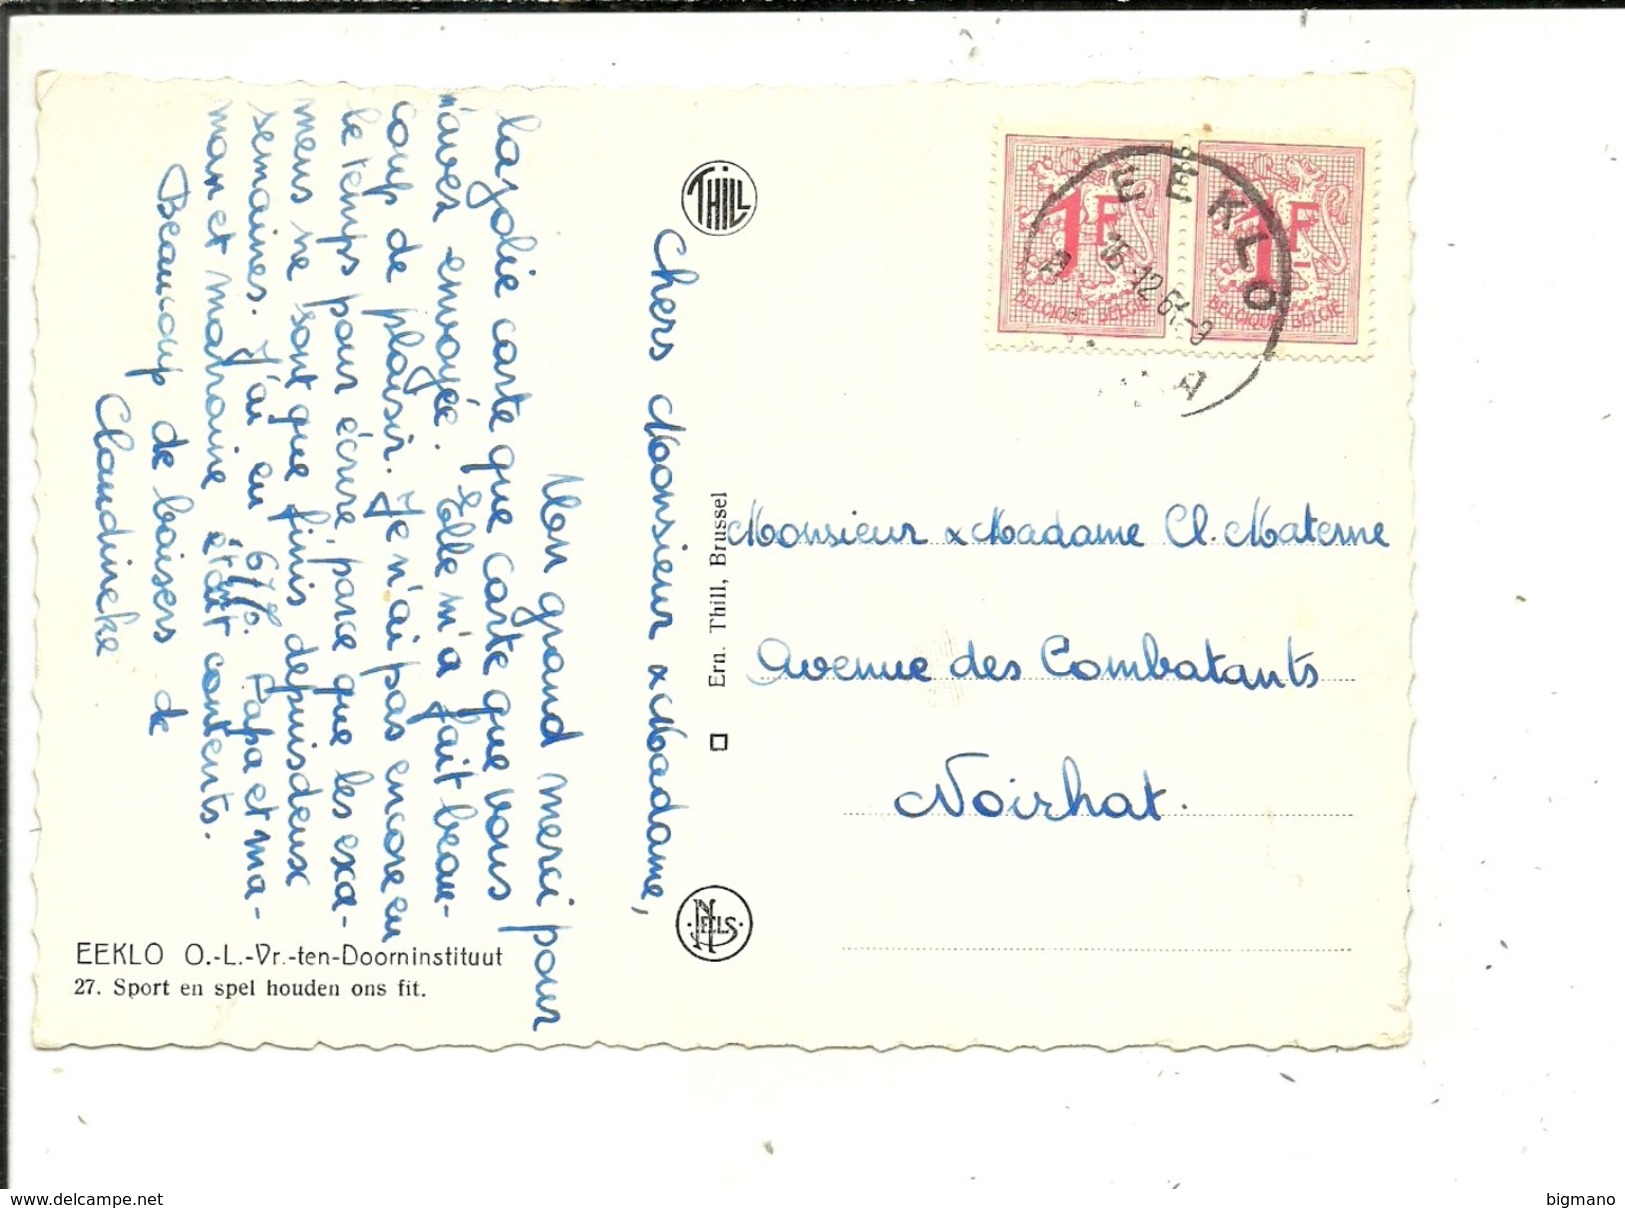 Chers Monsieur & Madame,
Mon grand merci pour
la jolie carte que carte que vous
m'avez envoyée. Elle m'a fait beau-
coup de plaisir. Je n'ai pas encore eu
le temps pour écrire, parce que les exa-
mens ne sont que finis depuis deux
semaines. J'ai eu 67%. Papa et ma-
man et marraine était contents.
Beaucoup de baisers de
Claudineke
EEKLO O.-L.-Vr.-ten-Doorninstituut
27. Sport en spel houden ons fit.
THILL
Ern. Thill, Brussel
NELS
1F
BELGIQUE BELGIË
1F
BELGIQUE BELGIË
EEKLO
A
Monsieur & Madame Cl. Materne
Avenue des Combatants
Noirhat.
www.delcampe.net
bigmano